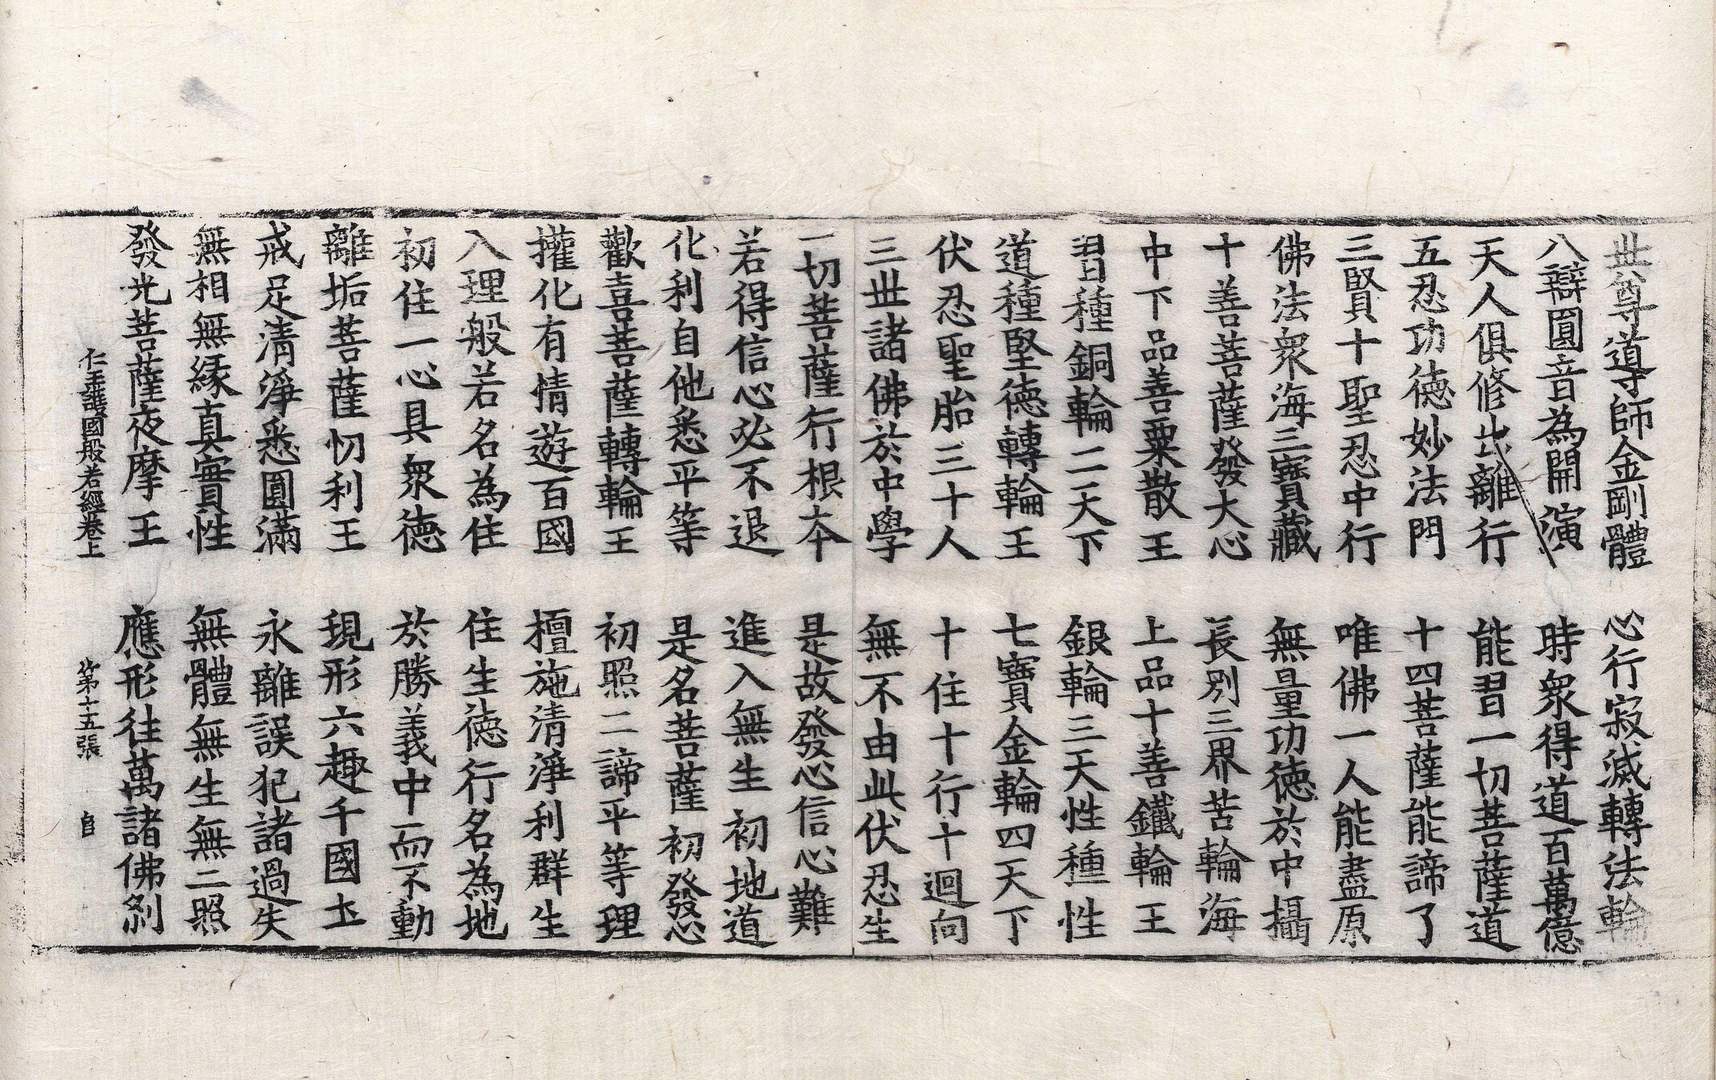 世尊導師金剛體　心行寂滅轉法輪
八辯圓音為開演　時眾得道百萬億
天人俱修出離行　能習一切菩薩道
五忍功德妙法門　十四菩薩能諦了
三賢十聖忍中行　唯佛一人能盡原
佛法衆海三寶藏　無量功德於中攝
十善菩薩發大心　長別三界苦輪海
中下品善粟散王　上品十善鐵輪王
習種銅輪二天下　銀輪三天性種性
道種堅德轉輪王　七寶金輪四天下
伏忍聖胎三十人　十住十行十迴向
三世諸佛於中學　無不由此伏忍生
一切菩薩行根本　是故發心信心難
若得信心必不退　進入無生初地道
化利自他悉平等　是名菩薩初發心
歡喜菩薩轉輪王　初照二諦平等理
權化有情遊百國　檀施清淨利群生
入理般若名為住　住生德行名為地
初住一心具衆德　於勝義中而不動
離垢菩薩忉利王　現形六趣千國土
戒足清淨悉圓滿　永離誤犯諸過失
無相無緣真實性　無體無生無二照
發光菩薩夜摩王　應形往萬諸佛剎
仁王護國般若經卷上　第十五張　自